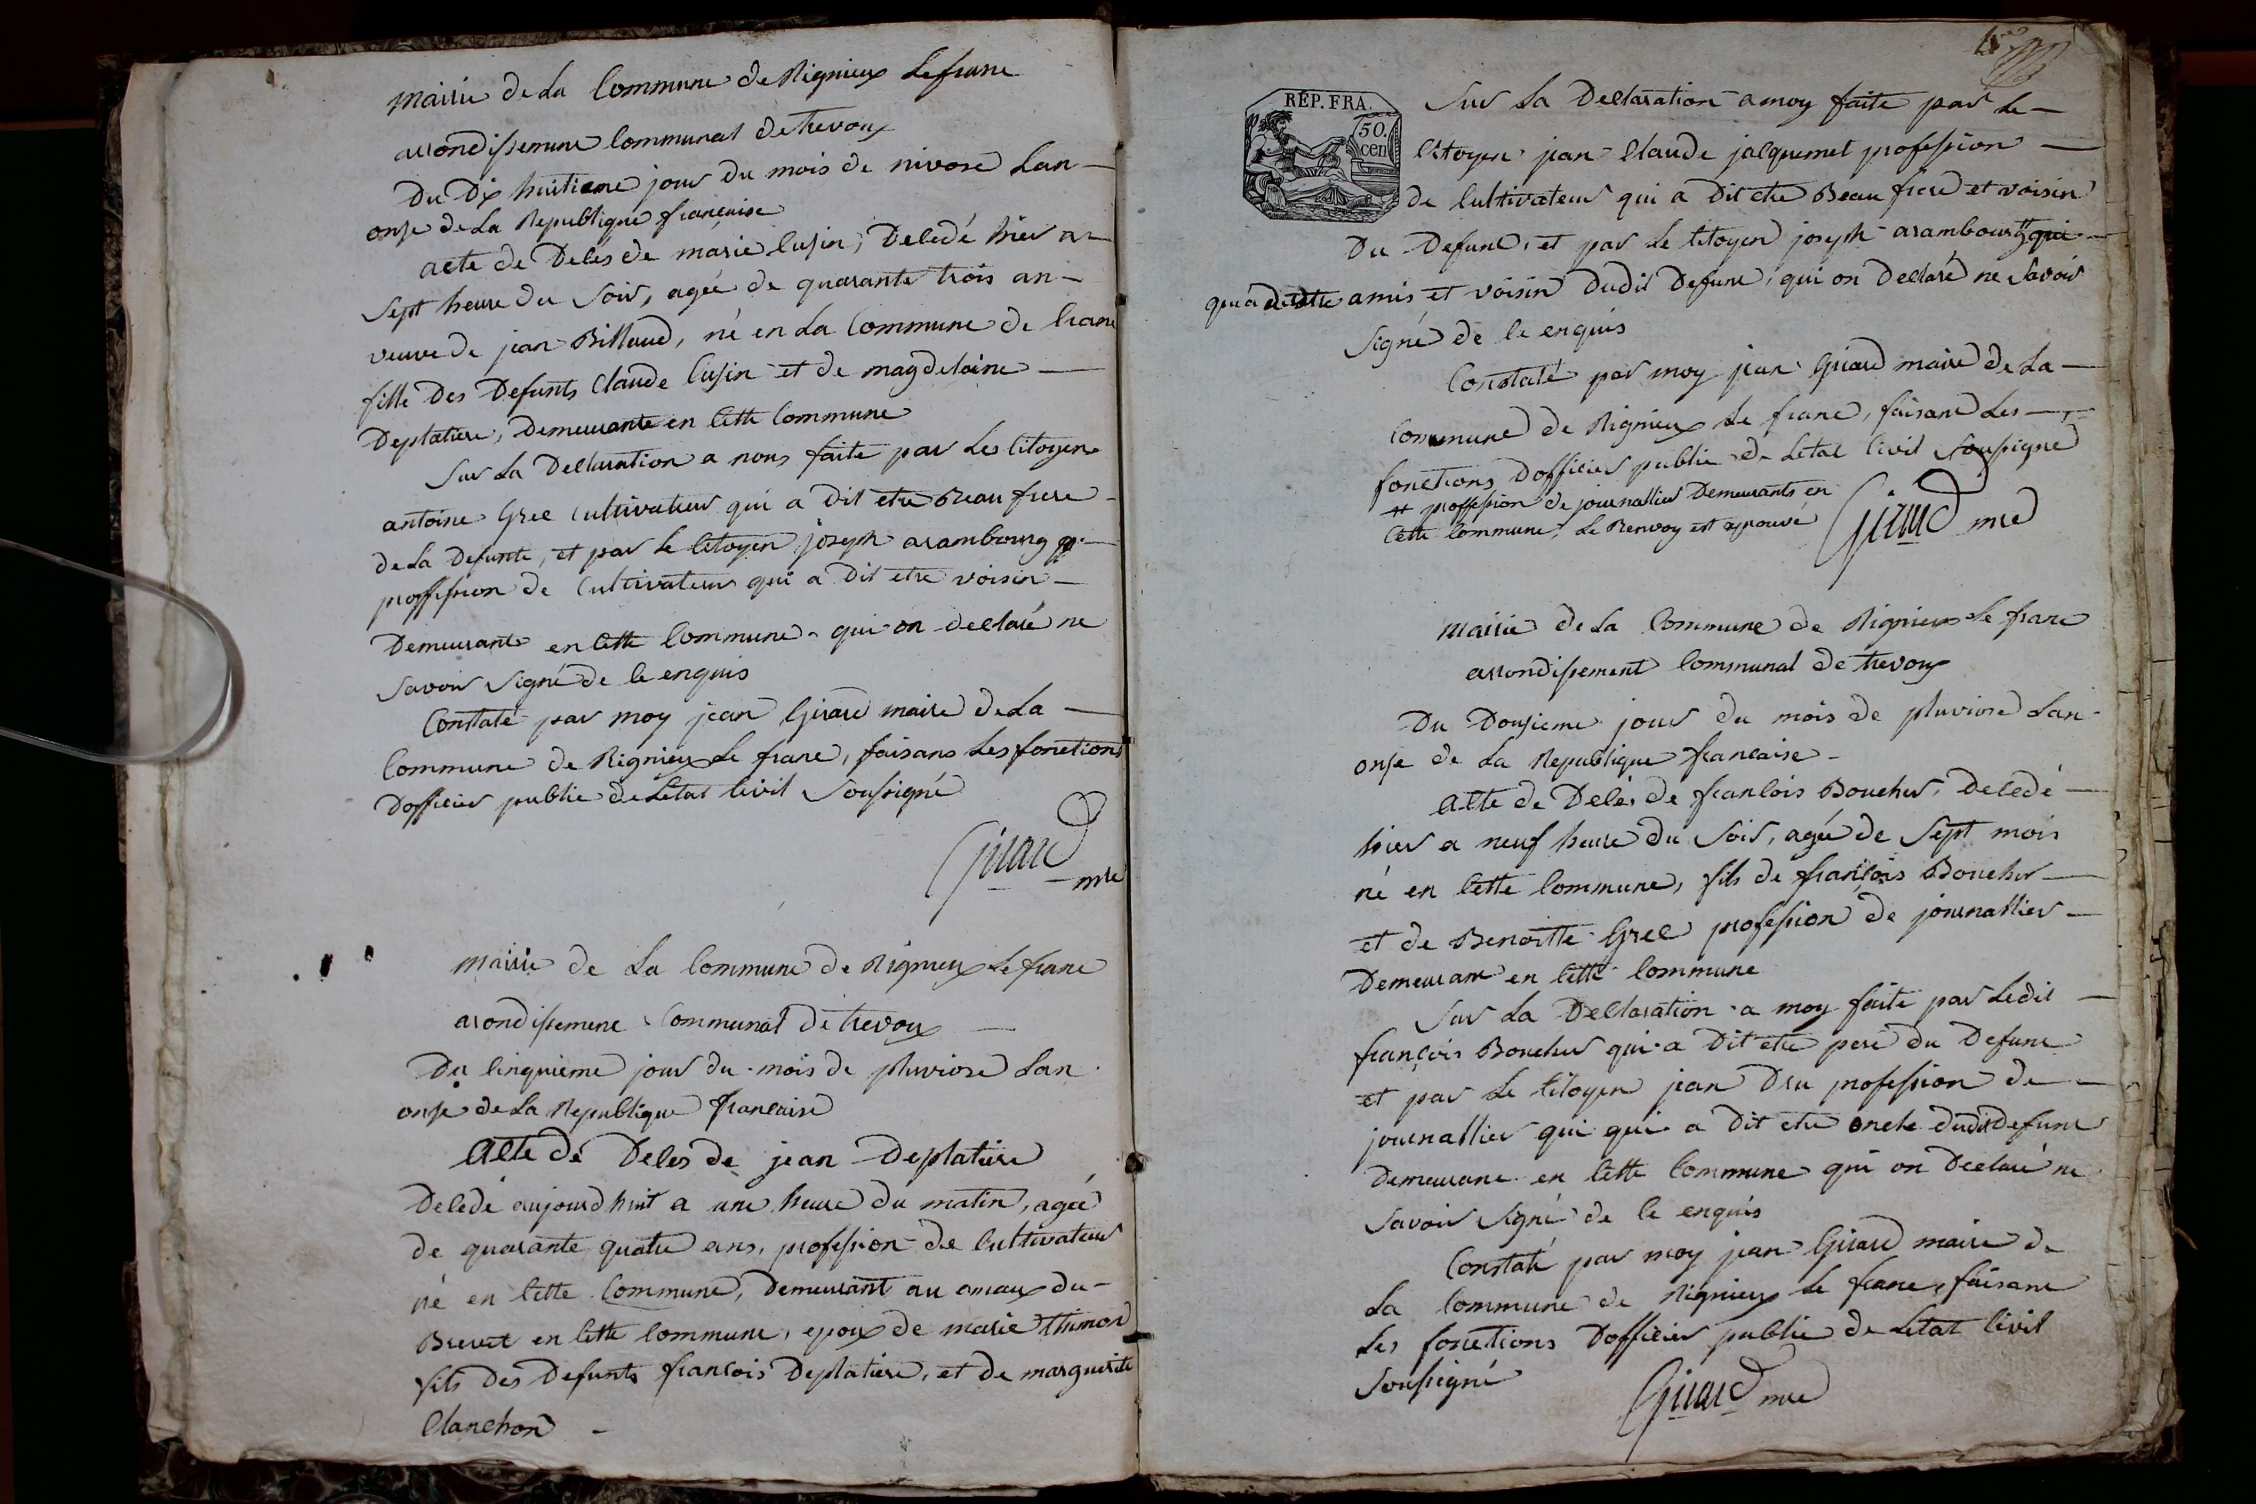 Mairie de La Commune de Rignieux Lefranc
arrondissement Communal de trevoux
Du Dix huitieme jour du mois de nivose Lan
onse de La Republique francaise
acte de Decés de marie Cusin, Decedé hier a
Sept heure du Soir, agée de quarante trois an
veuve de jean Billoud, né en La Commune de Crans
fille Des Defunts Claude Cusin et de magdelaine
Deplatiere, Demeurante en Cette Commune
Sur La Declaration a nous faite par Les Citoyens
antoine Gree Cultivateur qui a Dit etre Beau frere
de La Defunte, et par Le Citoyen joseph arambourg
proffession de Cultivateur qui a Dit etre voisin
Demeurants en Cette Commune qui on declaré ne
Savoir Signé de Ce enquis
Constaté par moy jean Girard maire de La
Commune de Rignieux Le franc, faisans Les fonctions
Dofficier public de Letat Civil Soussigné
Girard
mre
Mairie de La Commune de Rignieux Le franc
arondissement Communal de trevoux
Du Cinquieme jour du mois de pluviose Lan
onse de La Republique francaise
Acte de Deces de jean Deplatiere
Decedé aujourdhuit a une heure du matin, agée
de quarante quatre ans, profession de Cultivateur
né en Cette Commune, Demeurant au amaux du
Brevet en Cette Commune, epoux de marie thimon
fils Des Defunts francois Deplatiere, et de marguerite
Clanchon
REP. FRA.
50.
cen
Sur La Declaration a moy faite par Le
Citoyen jean Claude jacquemet profession
de Cultivateur qui a Dit etre Beau frere et voisin
Du Defunt, et par Le Citoyen joseph arambourg qui
qui a dit etre amis et voisin Dudit Defunt, qui on Declaré ne Savoir
Signé de Ce enquis
Constaté par moy jean Girard maire de La
Commune de Rignieux Le franc, faisant Les
fonctions Dofficier public de Letat Civil Soussigné
# proffession de journallier Demeurants en
Cette Commune Le Renvoy est aprouvé
Girard mre
Mairie de La Commune de Rignieux Le franc
arrondissement Communal de trevoux
Du Dousieme jour du mois de pluviose Lan
onse de La Republique francaise
Acte de Decés de francois Boucher, Decedé
hier a neuf heure du Soir, agée de Sept mois
né en Cette Commune, fils de françois Boucher
et de Benoitte Gree profession de journallier
Demeurant en Cette Commune
Sur La Declaration a moy faite par Ledit
françois Boucher qui a Dit etre pere du Defunt
et par Le Citoyen jean Dru profession de
journallier qui qui a Dit etre oncle dudit Defunt
Demeurant en Cette Commune qui on Declaré ne
Savoir Signé de Ce enquis
Constaté par moy jean Girard maire de
La Commune de Rignieux Le franc, faisant
Les fonctions Dofficier public de Letat Civil
Soussigné
Girard mre